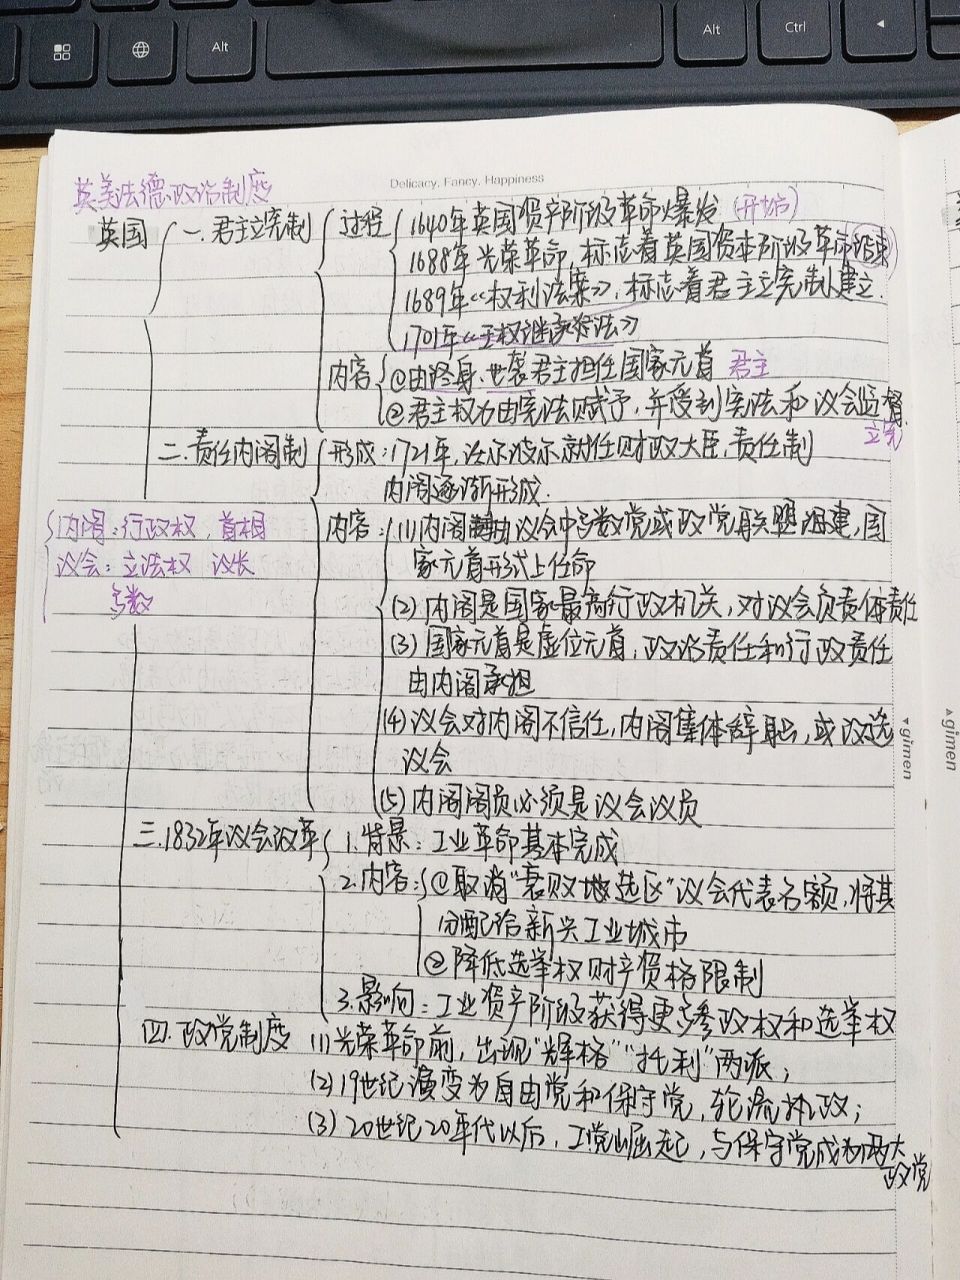 Alt
Alt
Ctrl
Delicacy, Fancy, Happiness
英美法德政治制度
英国
一.君主立宪制
过程
1640年英国资产阶级革命爆发(开始)
1688年光荣革命,标志着英国资本阶级革命结束
1689年《权利法案》,标志着君主立宪制建立.
1701年《王权继承法》
内容
①由终身、世袭君主担任国家元首 君主
②君主权力由宪法赋予,并受到宪法和议会监督.
立宪
二.责任内阁制
形成:1721年,沃尔波尔就任财政大臣,责任制
内阁逐渐形成.
内阁:行政权,首相
议会:立法权 议长
多数
内容:(1)内阁由议会中多数党或政党联盟组建,国
家元首形式上任命
(2)内阁是国家最高行政机关,对议会负责体责任
(3)国家元首是虚位元首,政治责任和行政责任
由内阁承担
(4)议会对内阁不信任,内阁集体辞职,或改选
议会
(5)内阁阁员必须是议会议员
三.1832年议会改革
1.背景:工业革命基本完成
2.内容:①取消"衰败地选区"议会代表名额,将其
分配给新兴工业城市
②降低选举权财产资格限制
3.影响:工业资产阶级获得更多参政权和选举权
四.政党制度 (1)光荣革命前,出现"辉格""托利"两派;
(2)19世纪演变为自由党和保守党,轮流执政;
(3)20世纪20年代以后,工党崛起,与保守党成为两大
政党
gimen
gimen